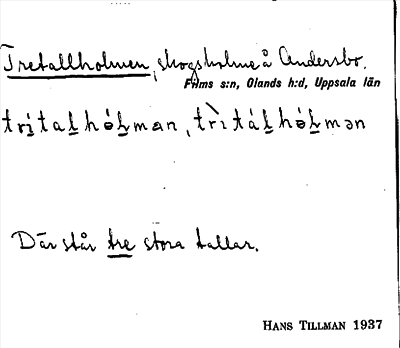 Tretallholmen, skogsholme å Andersbo.
Films s:n, Olands h:d, Uppsala län
Där står tre stora tallar.
HANS TILLMAN 1937